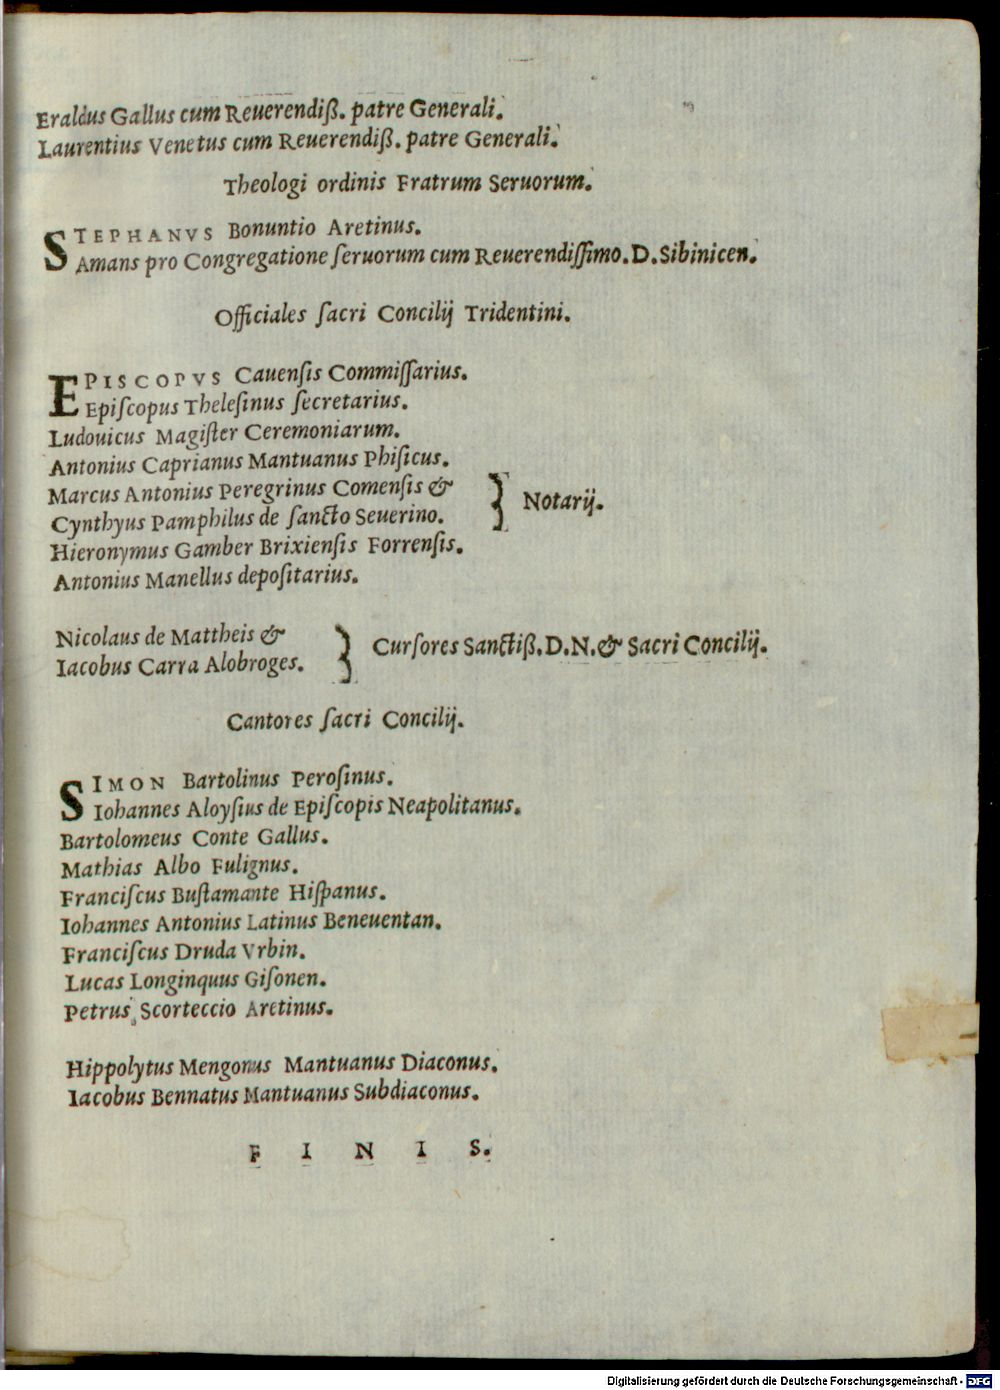 Eraldus Gallus cum Reuerendiß. patre Generali.
Laurentius Venetus cum Reuerendiß. patre Generali.
Theologi ordinis Fratrum Seruorum.
STEPHANVS Bonuntio Aretinus.
Amans pro Congregatione ſeruorum cum Reuerendiſſimo. D. Sibinicen.
Officiales ſacri Concilij Tridentini.
EPISCOPVS Cauenſis Commiſſarius.
Epiſcopus Theleſinus ſecretarius.
Ludouicus Magiſter Ceremoniarum.
Antonius Caprianus Mantuanus Phiſicus.
Marcus Antonius Peregrinus Comenſis &
Cynthyus Pamphilus de ſancto Seuerino.
} Notarij.
Hieronymus Gamber Brixienſis Forrenſis.
Antonius Manellus depoſitarius.
Nicolaus de Mattheis &
Iacobus Carra Alobroges.
} Curſores Sanctiß. D. N. & Sacri Concilij.
Cantores ſacri Concilij.
SIMON Bartolinus Peroſinus.
Iohannes Aloyſius de Epiſcopis Neapolitanus.
Bartolomeus Conte Gallus.
Mathias Albo Fulignus.
Franciſcus Buſtamante Hiſpanus.
Iohannes Antonius Latinus Beneuentan.
Franciſcus Druda Vrbin.
Lucas Longinquus Giſonen.
Petrus Scorteccio Aretinus.
Hippolytus Mengonus Mantuanus Diaconus.
Iacobus Bennatus Mantuanus Subdiaconus.
F I N I S.
Digitalisierung gefördert durch die Deutsche Forschungsgemeinschaft - DFG